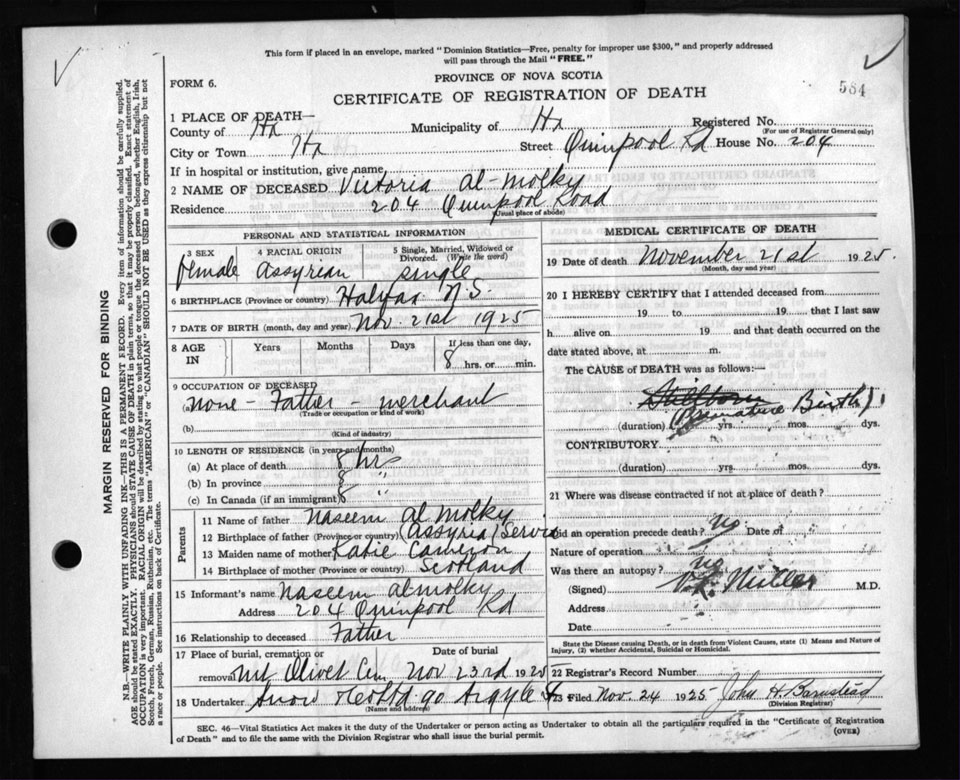 This form if placed in an envelope, marked "Dominion Statistics—Free, penalty for improper use $300," and properly addressed
will pass through the Mail "FREE."
FORM 6.
PROVINCE OF NOVA SCOTIA
564
CERTIFICATE OF REGISTRATION OF DEATH
1 PLACE OF DEATH—
County of Hx Municipality of Hx Registered No.
(For use of Registrar General only)
City or Town Hx Street Quinpool Rd House No. 204
If in hospital or institution, give name
2 NAME OF DECEASED Victoria Al-Molky
Residence 204 Quinpool Road
(Usual place of abode)
PERSONAL AND STATISTICAL INFORMATION
3 SEX 4 RACIAL ORIGIN 5 Single, Married, Widowed or Divorced. (Write the word)
female Assyrean single
6 BIRTHPLACE (Province or country) Halifax N.S.
7 DATE OF BIRTH (month, day and year) Nov. 21st 1925
8 AGE IN Years Months Days If less than one day,
8 hrs. or min.
9 OCCUPATION OF DECEASED
(a) None - Father - merchant
(Trade or occupation or kind of work)
(b)
(Kind of industry)
10 LENGTH OF RESIDENCE (in years and months)
(a) At place of death 8 hrs
(b) In province 8 "
(c) In Canada (if an immigrant) 8 "
Parents
11 Name of father Naseem Al Molky
12 Birthplace of father (Province or country) (Assyria)
13 Maiden name of mother Katie Cameron
14 Birthplace of mother (Province or country) Scotland
15 Informant's name Naseem Almolky
Address 204 Quinpool Rd
16 Relationship to deceased Father
17 Place of burial, cremation or removal Date of burial
Mt Olivet Cem Nov 23rd 1925
18 Undertaker Snow & Co Ltd 90 Argyle St
(Name and address)
MEDICAL CERTIFICATE OF DEATH
19 Date of death November 21st 1925.
(Month, day and year)
20 I HEREBY CERTIFY that I attended deceased from
19 to 19 that I last saw
h alive on 19 and that death occurred on the
date stated above, at m.
The CAUSE of DEATH was as follows:—
Stillborn
(Premature Birth)
(duration) yrs. mos. dys.
CONTRIBUTORY
(duration) yrs. mos. dys.
21 Where was disease contracted if not at place of death?
Did an operation precede death? No Date of
Nature of operation
Was there an autopsy? no
(Signed) M.D.
Address
Date
State the Disease causing Death, or in death from Violent Causes, state (1) Means and Nature of
Injury, (2) whether Accidental, Suicidal or Homicidal.
22 Registrar's Record Number
23 Filed Nov. 24 1925 John H. Barnstead
(Division Registrar)
SEC. 46—Vital Statistics Act makes it the duty of the Undertaker or person acting as Undertaker to obtain all the particulars required in the "Certificate of Registration
of Death" and to file the same with the Division Registrar who shall issue the burial permit.
(OVER)
MARGIN RESERVED FOR BINDING
N.B.—WRITE PLAINLY WITH UNFADING INK—THIS IS A PERMANENT RECORD. Every item of information should be carefully supplied.
AGE should be stated EXACTLY. PHYSICIANS should STATE CAUSE OF DEATH in plain terms, so that it may be properly classified. Exact statement of
OCCUPATION is very important. RACIAL ORIGIN will be described by stating to what people or tongue the deceased person belonged, whether English, Irish,
Scotch, French, German, Russian, Ruthenian, etc. The terms "AMERICAN" or "CANADIAN" SHOULD NOT BE USED as they express citizenship but not
a race or people. See instructions on back of Certificate.